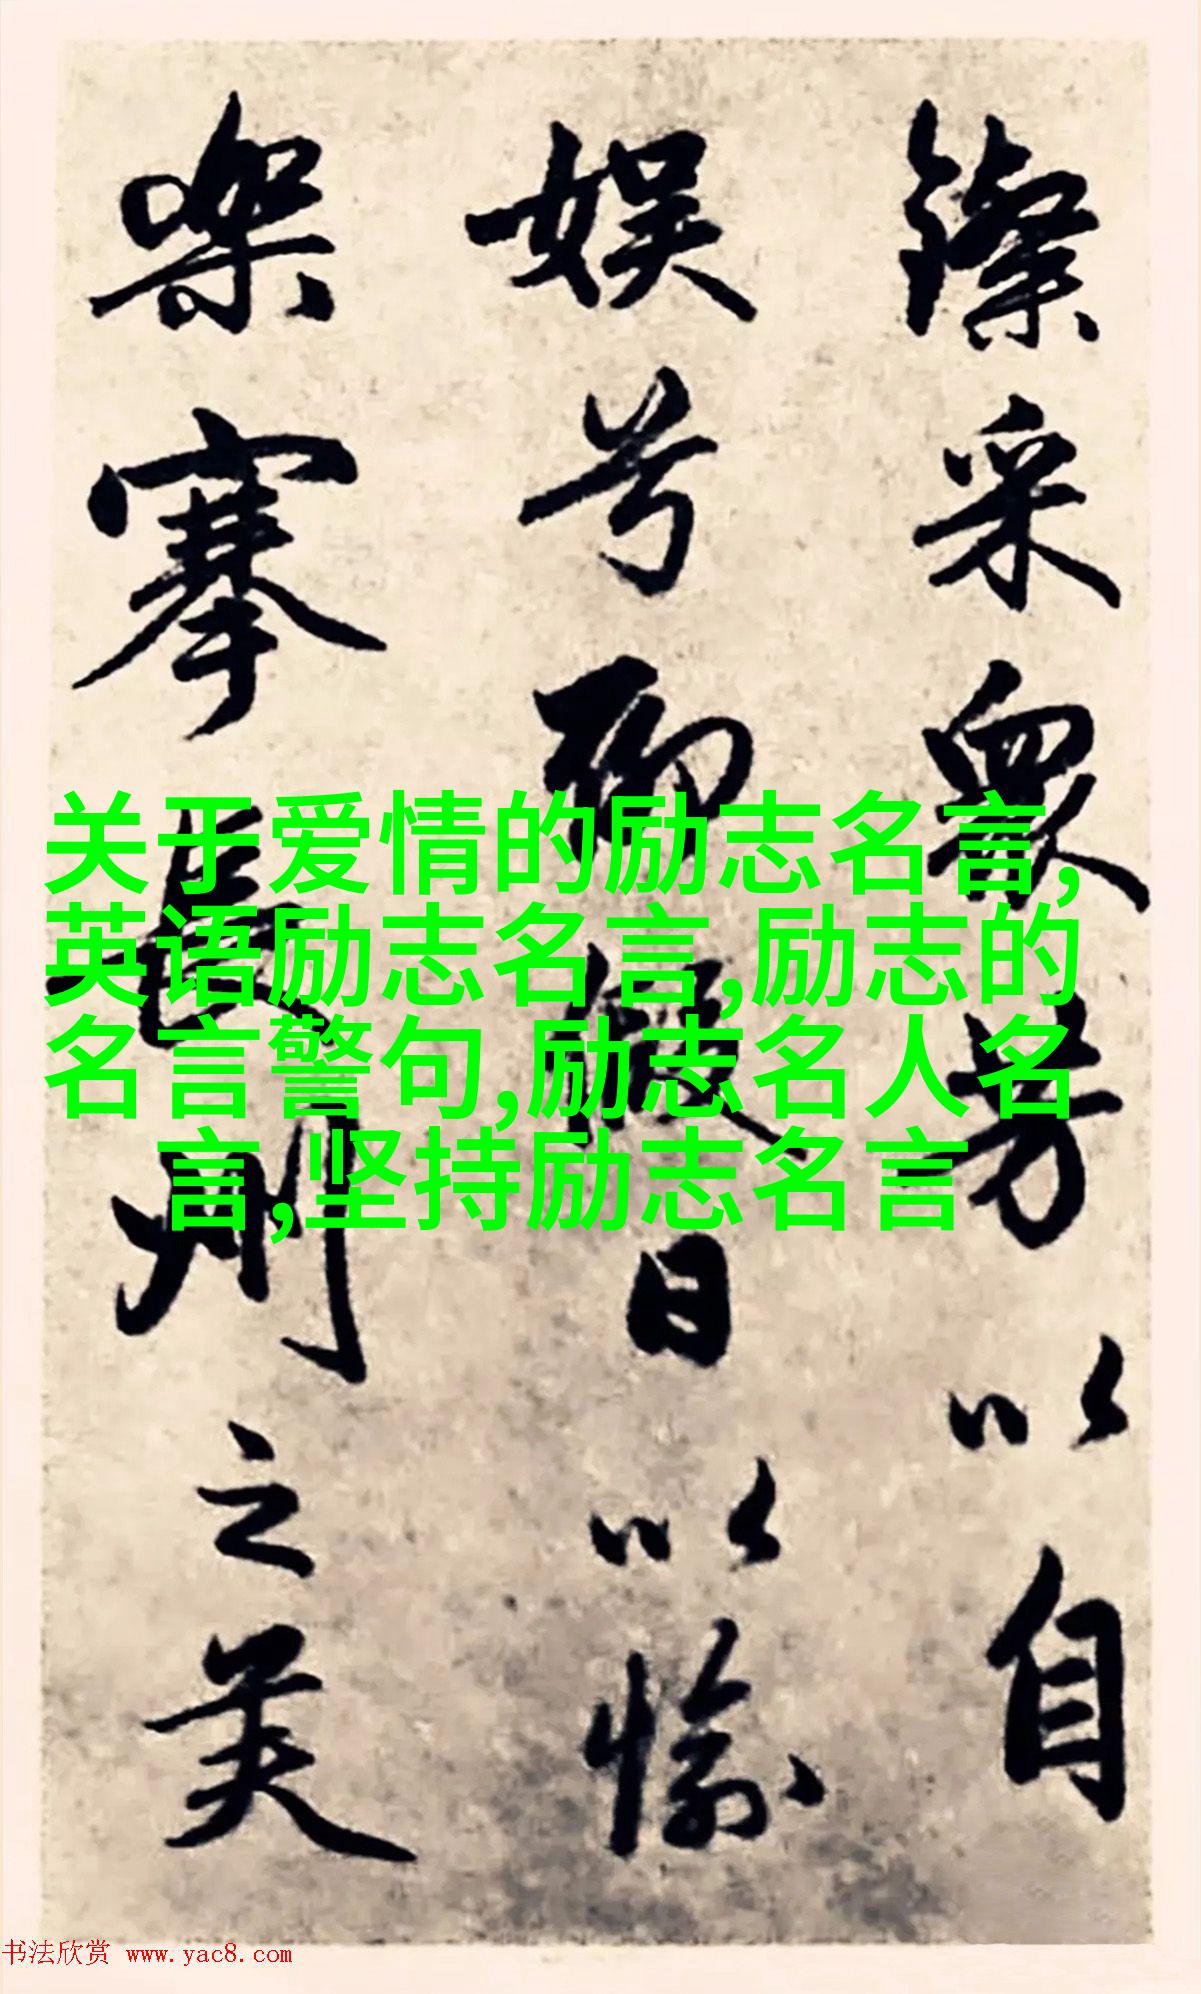 采衆芳以自
娱兮聊假日以愉
樂搴長洲之芙
关于爱情的励志名言,
英语励志名言,励志的
名言警句,励志名人名
言,坚持励志名言
书法欣赏 www.yac8.com